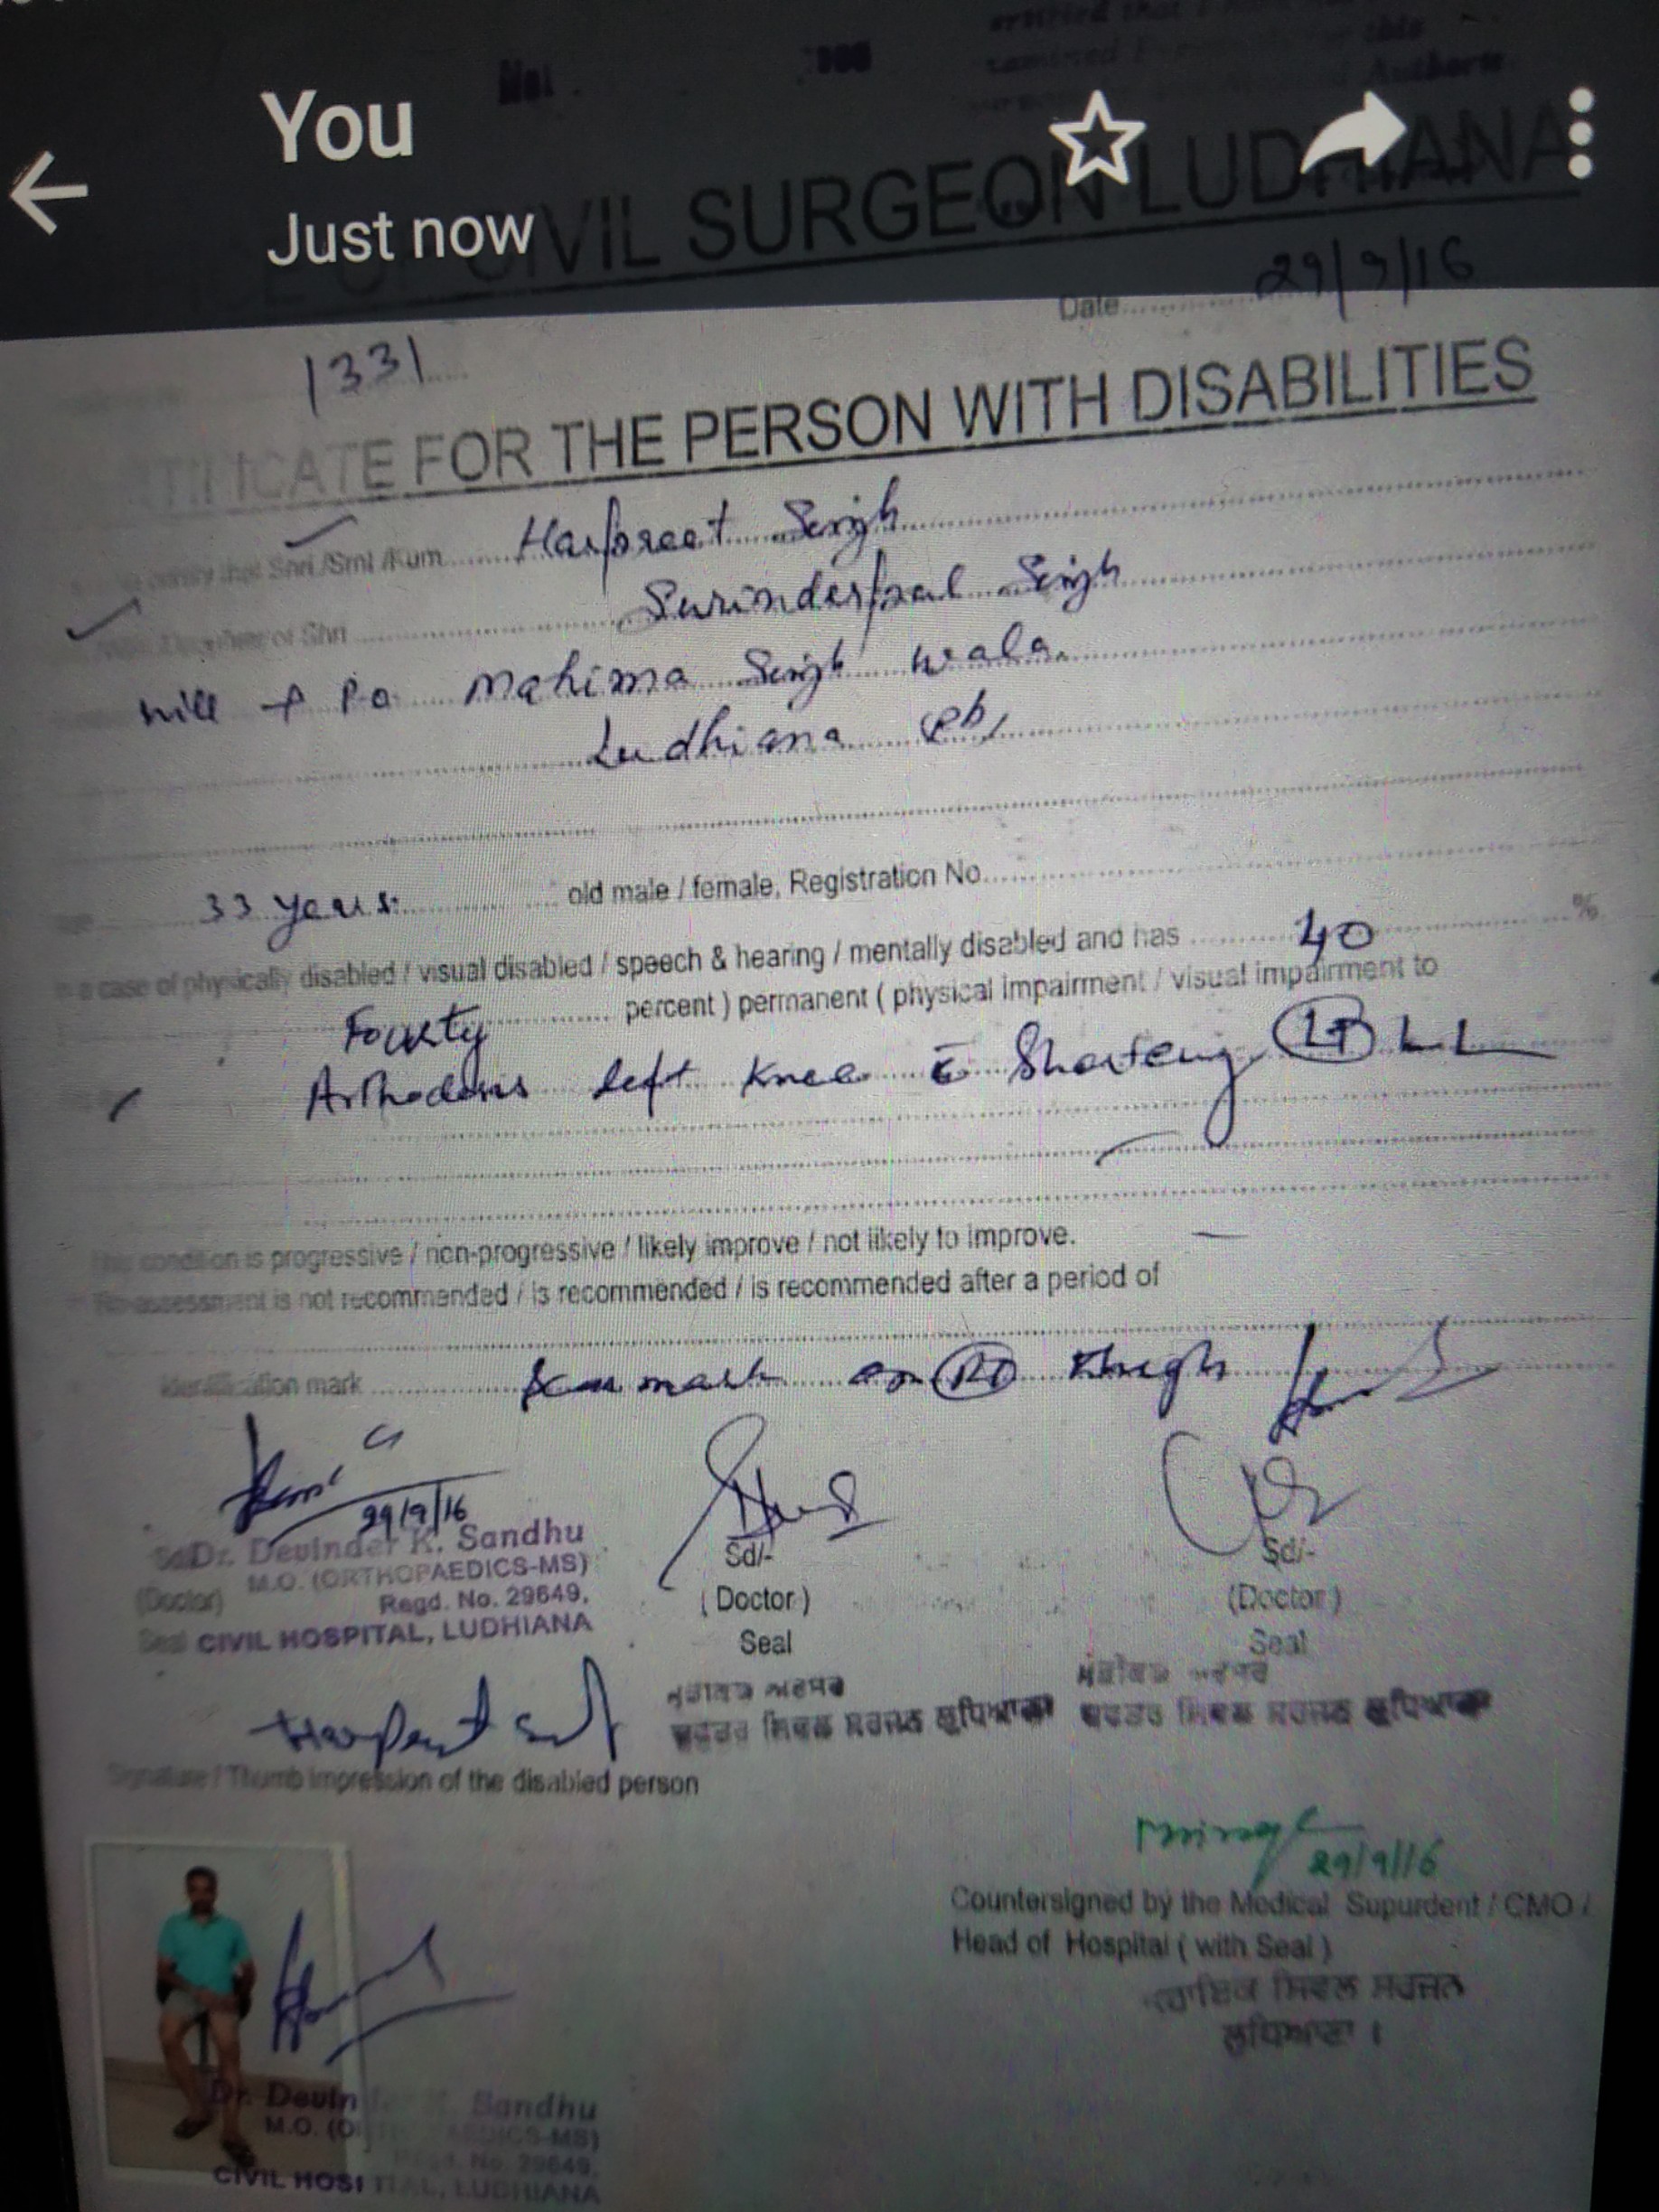 You
Just now
CIVIL SURGEON LUDHIANA
Date 29/9/16
1331
CATE FOR THE PERSON WITH DISABILITIES
certify that Shri /Smt /Kum Harpreet Singh
of Shri Surinderpal Singh
vill + Po Mahima Singh wala
Ludhiana (Pb)
33 years old male / female, Registration No
is a case of physically disabled / visual disabled / speech & hearing / mentally disabled and has 40 %
Fourty percent ) permanent ( physical impairment / visual impairment to
left Knee c̄ LT LL
condition is progressive / non-progressive / likely improve / not likely to improve.
Re-assessment is not recommended / is recommended / is recommended after a period of
Identification mark mark on RT thigh
29/9/16
Dr. Devinder K. Sandhu
M.O. (ORTHOPAEDICS-MS)
(Doctor) Regd. No. 29649,
Seal CIVIL HOSPITAL, LUDHIANA
Sd/- Sd/-
(Doctor) (Doctor)
Seal Seal
ਦਫਤਰ ਸਿਵਲ ਸਰਜਨ ਲੁਧਿਆਣਾ ਦਫਤਰ ਸਿਵਲ ਸਰਜਨ ਲੁਧਿਆਣਾ
Signature / Thumb impression of the disabled person
29/9/16
Countersigned by the Medical Supurdent / CMO /
Head of Hospital ( with Seal )
ਸਿਵਲ ਸਰਜਨ
ਲੁਧਿਆਣਾ ।
Dr. Devin Sandhu
M.O. (O ICS-MS)
No. 29649,
CIVIL HOSPITAL, LUDHIANA